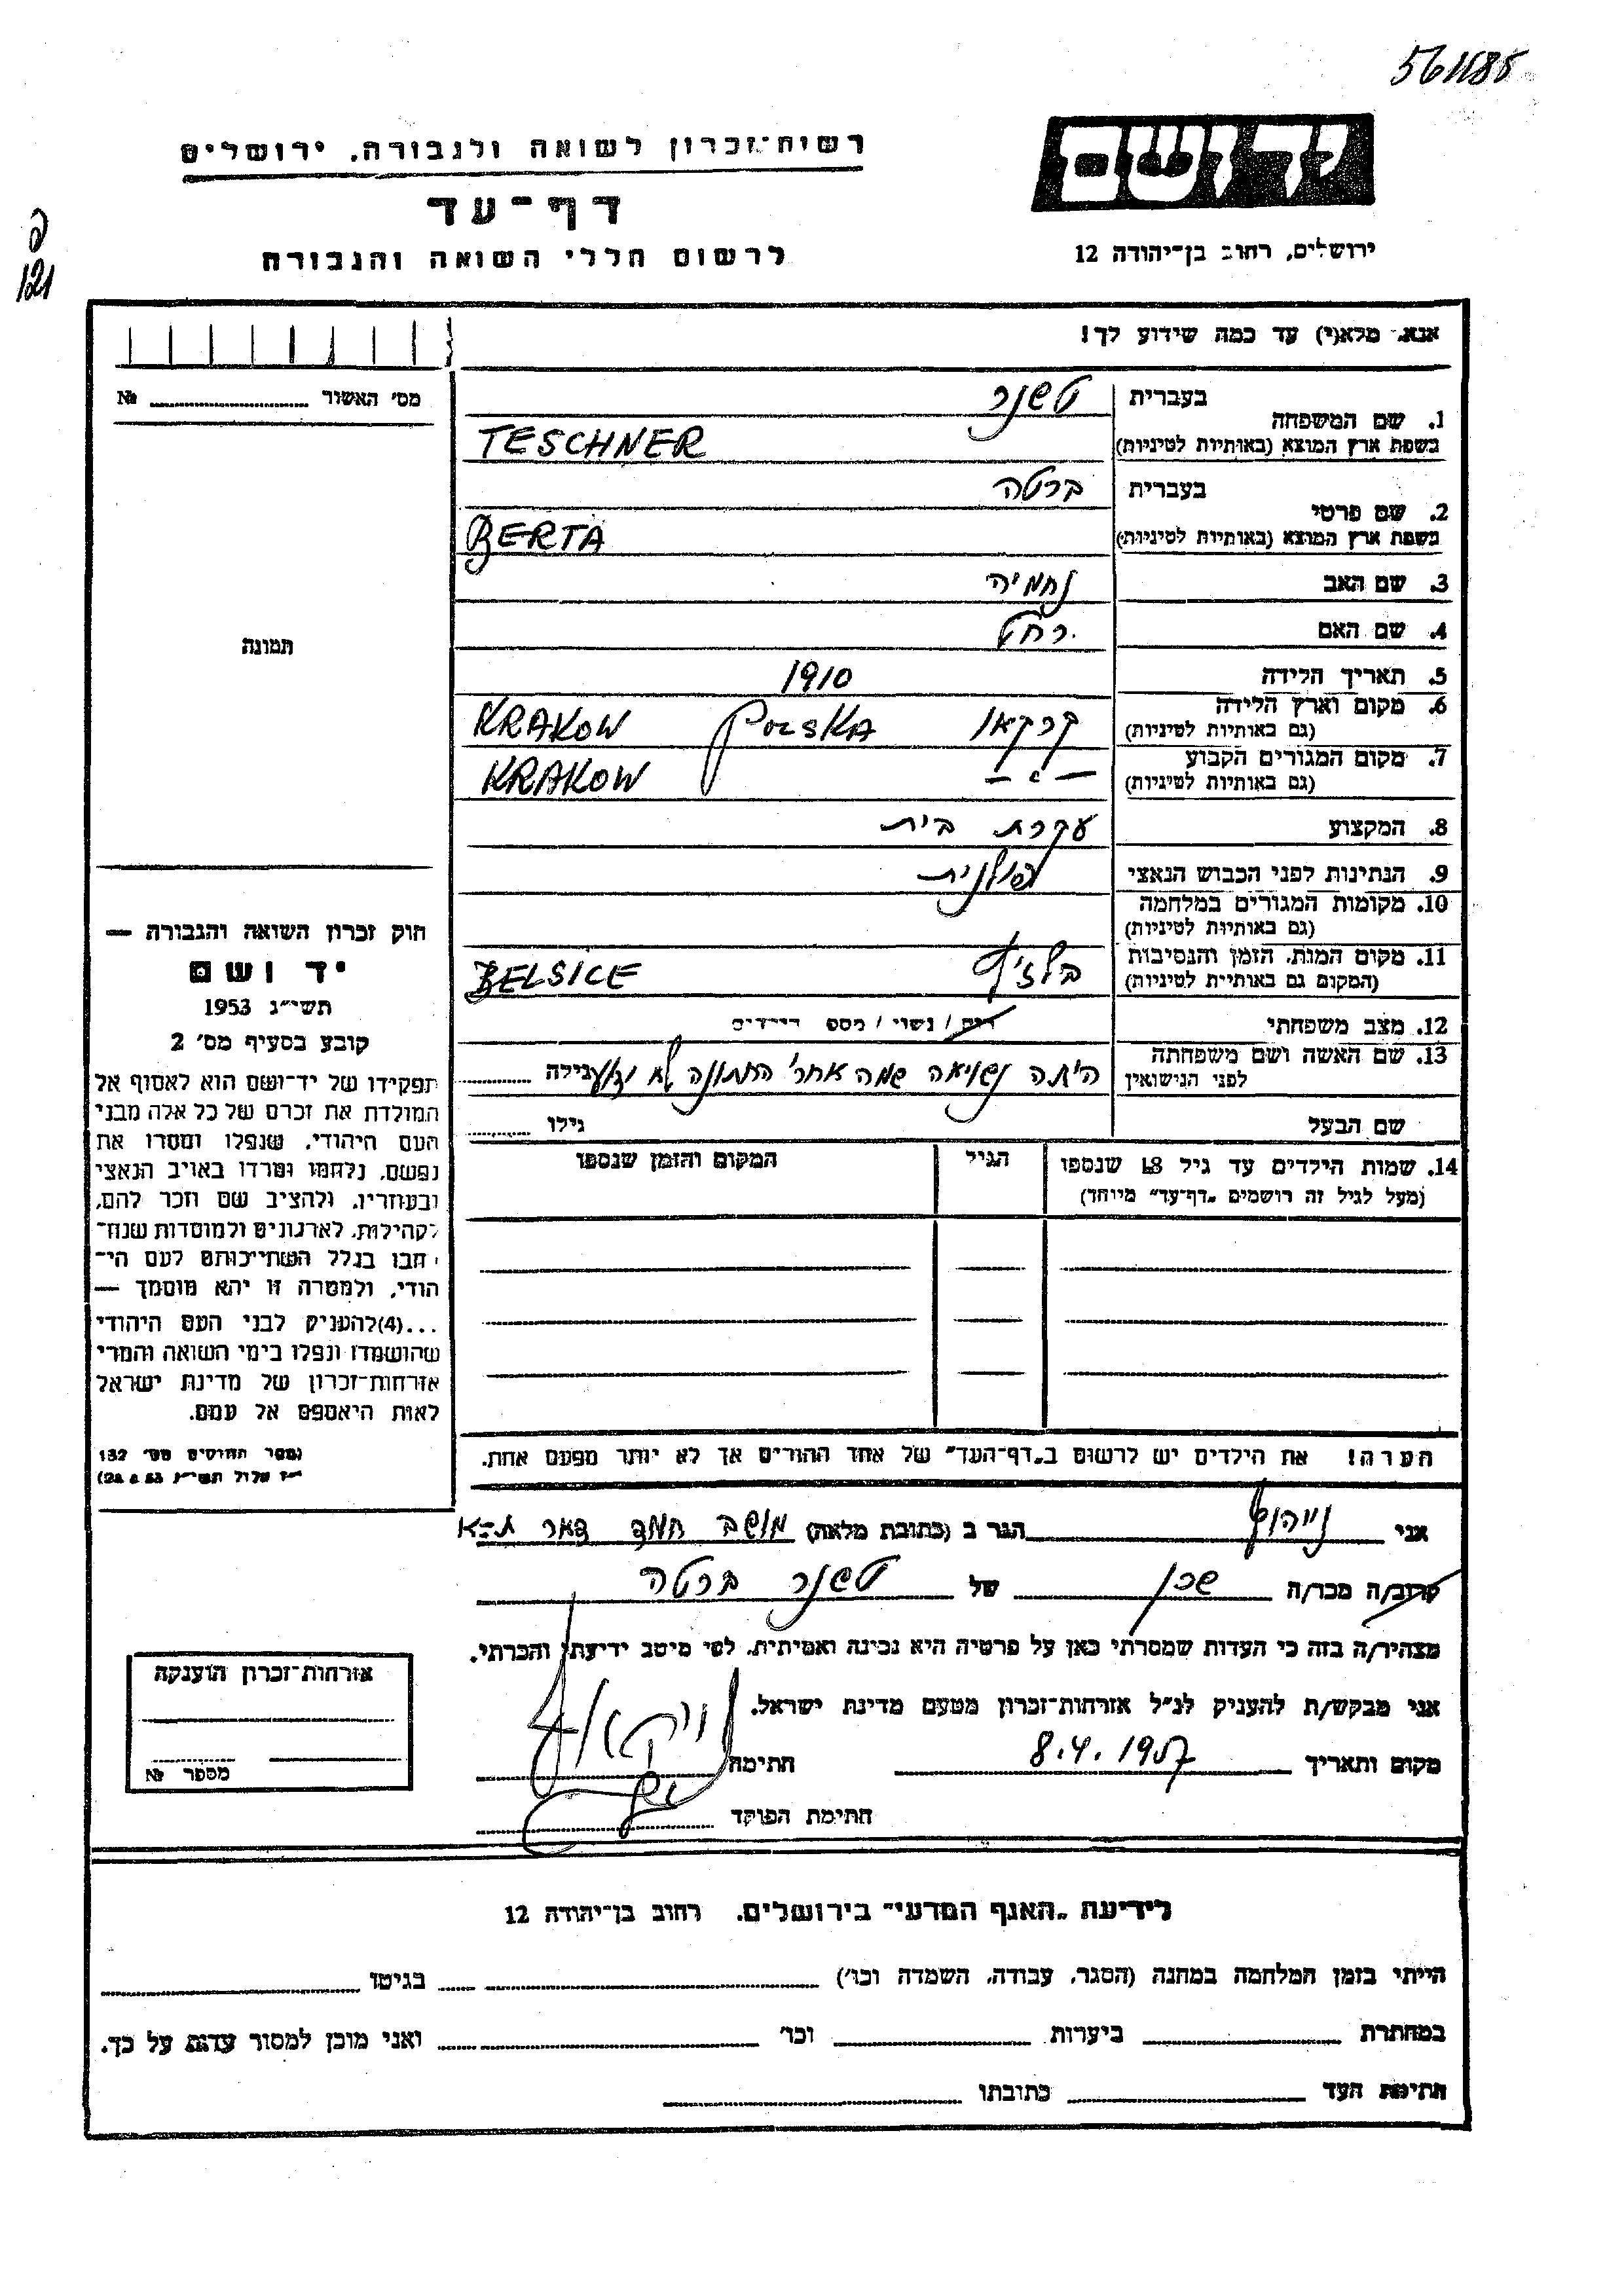 561185
ידושם
ירושלים, רחוב בן־יהודה 12
רשות־זכרון לשואה ולגבורה, ירושלים
דף־עד
לרשום חללי השואה והגבורה
121
אנא, מלא(י) עד כמה שידוע לך!
מס' האשור № 
1. שם המשפחה בעברית טשנר
בשפת ארץ המוצא (באותיות לטיניות) TESCHNER
2. שם פרטי בעברית ברטה
בשפת ארץ המוצא (באותיות לטיניות) BERTA
3. שם האב נחמיה
4. שם האם רחל
5. תאריך הלידה 1910
6. מקום וארץ הלידה (גם באותיות לטיניות) קרקאו POLSKA KRAKOW
7. מקום המגורים הקבוע (גם באותיות לטיניות) – " – KRAKOW
8. המקצוע עקרת בית
9. הנתינות לפני הכבוש הנאצי פולנית
10. מקומות המגורים במלחמה (גם באותיות לטיניות)
11. מקום המות, הזמן והנסיבות (המקום גם באותיות לטיניות) בלזיץ BELSICE
12. מצב משפחתי רווק / נשוי / מספר הילדים
13. שם האשה ושם משפחתה לפני הנישואין היתה נשואה שמה אחרי החתונה לא ידוע גילה
שם הבעל גילו
14. שמות הילדים עד גיל 18 שנספו (מעל לגיל זה רושמים "דף־עד" מיוחד) הגיל המקום והזמן שנספו
הערה! את הילדים יש לרשום ב"דף־העד" של אחד ההורים אך לא יותר מפעם אחת.
תמונה
חוק זכרון השואה והגבורה —
יד ושם
תשי"ג 1953
קובע בסעיף מס' 2
תפקידו של יד־ושם הוא לאסוף אל
המולדת את זכרם של כל אלה מבני
העם היהודי, שנפלו ומסרו את
נפשם, נלחמו ומרדו באויב הנאצי
ובעוזריו, ולהציב שם וזכר להם,
לקהילות, לארגונים ולמוסדות שנח־
רבו בגלל השתייכותם לעם הי־
הודי, ולמטרה זו יהא מוסמך —
...(4)להעניק לבני העם היהודי
שהושמדו ונפלו בימי השואה והמרי
אזרחות־זכרון של מדינת ישראל
לאות היאספם אל עמם.
(ספר החוקים מס' 132
י"ז אלול תשי"ג 28.8.53)
אני הגר ב (כתובת מלאה) מושב חמד דאר ת-א
קרוב/ה מכר/ה שכן של טשנר ברטה
מצהיר/ה בזה כי העדות שמסרתי כאן על פרטיה היא נכונה ואמיתית, לפי מיטב ידיעתי והכרתי.
אני מבקש/ת להעניק לנ"ל אזרחות־זכרון מטעם מדינת ישראל.
מקום ותאריך 8.4.1957 חתימה
חתימת הפוקד
אזרחות־זכרון הוענקה
מספר №
לידיעת "האגף המדעי" בירושלים, רחוב בן־יהודה 12
הייתי בזמן המלחמה במחנה (הסגר, עבודה, השמדה וכו') בגיטו
במחתרת ביערות וכו' ואני מוכן למסור עדות על כך.
חתימת העד כתובתו